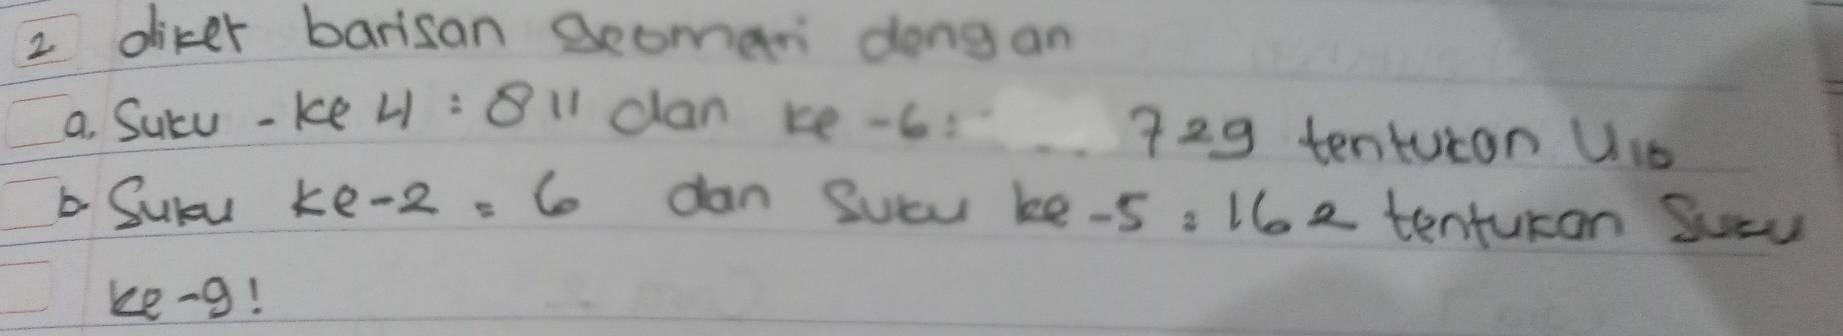 2 diket barisan geometri dengan
a. Suku - ke 4 : 811 dan ke -6 : 729 tentukan U10
b Suku ke-2 = 6 dan Suku ke -5 : 162 tentukan Suku
ke-9!